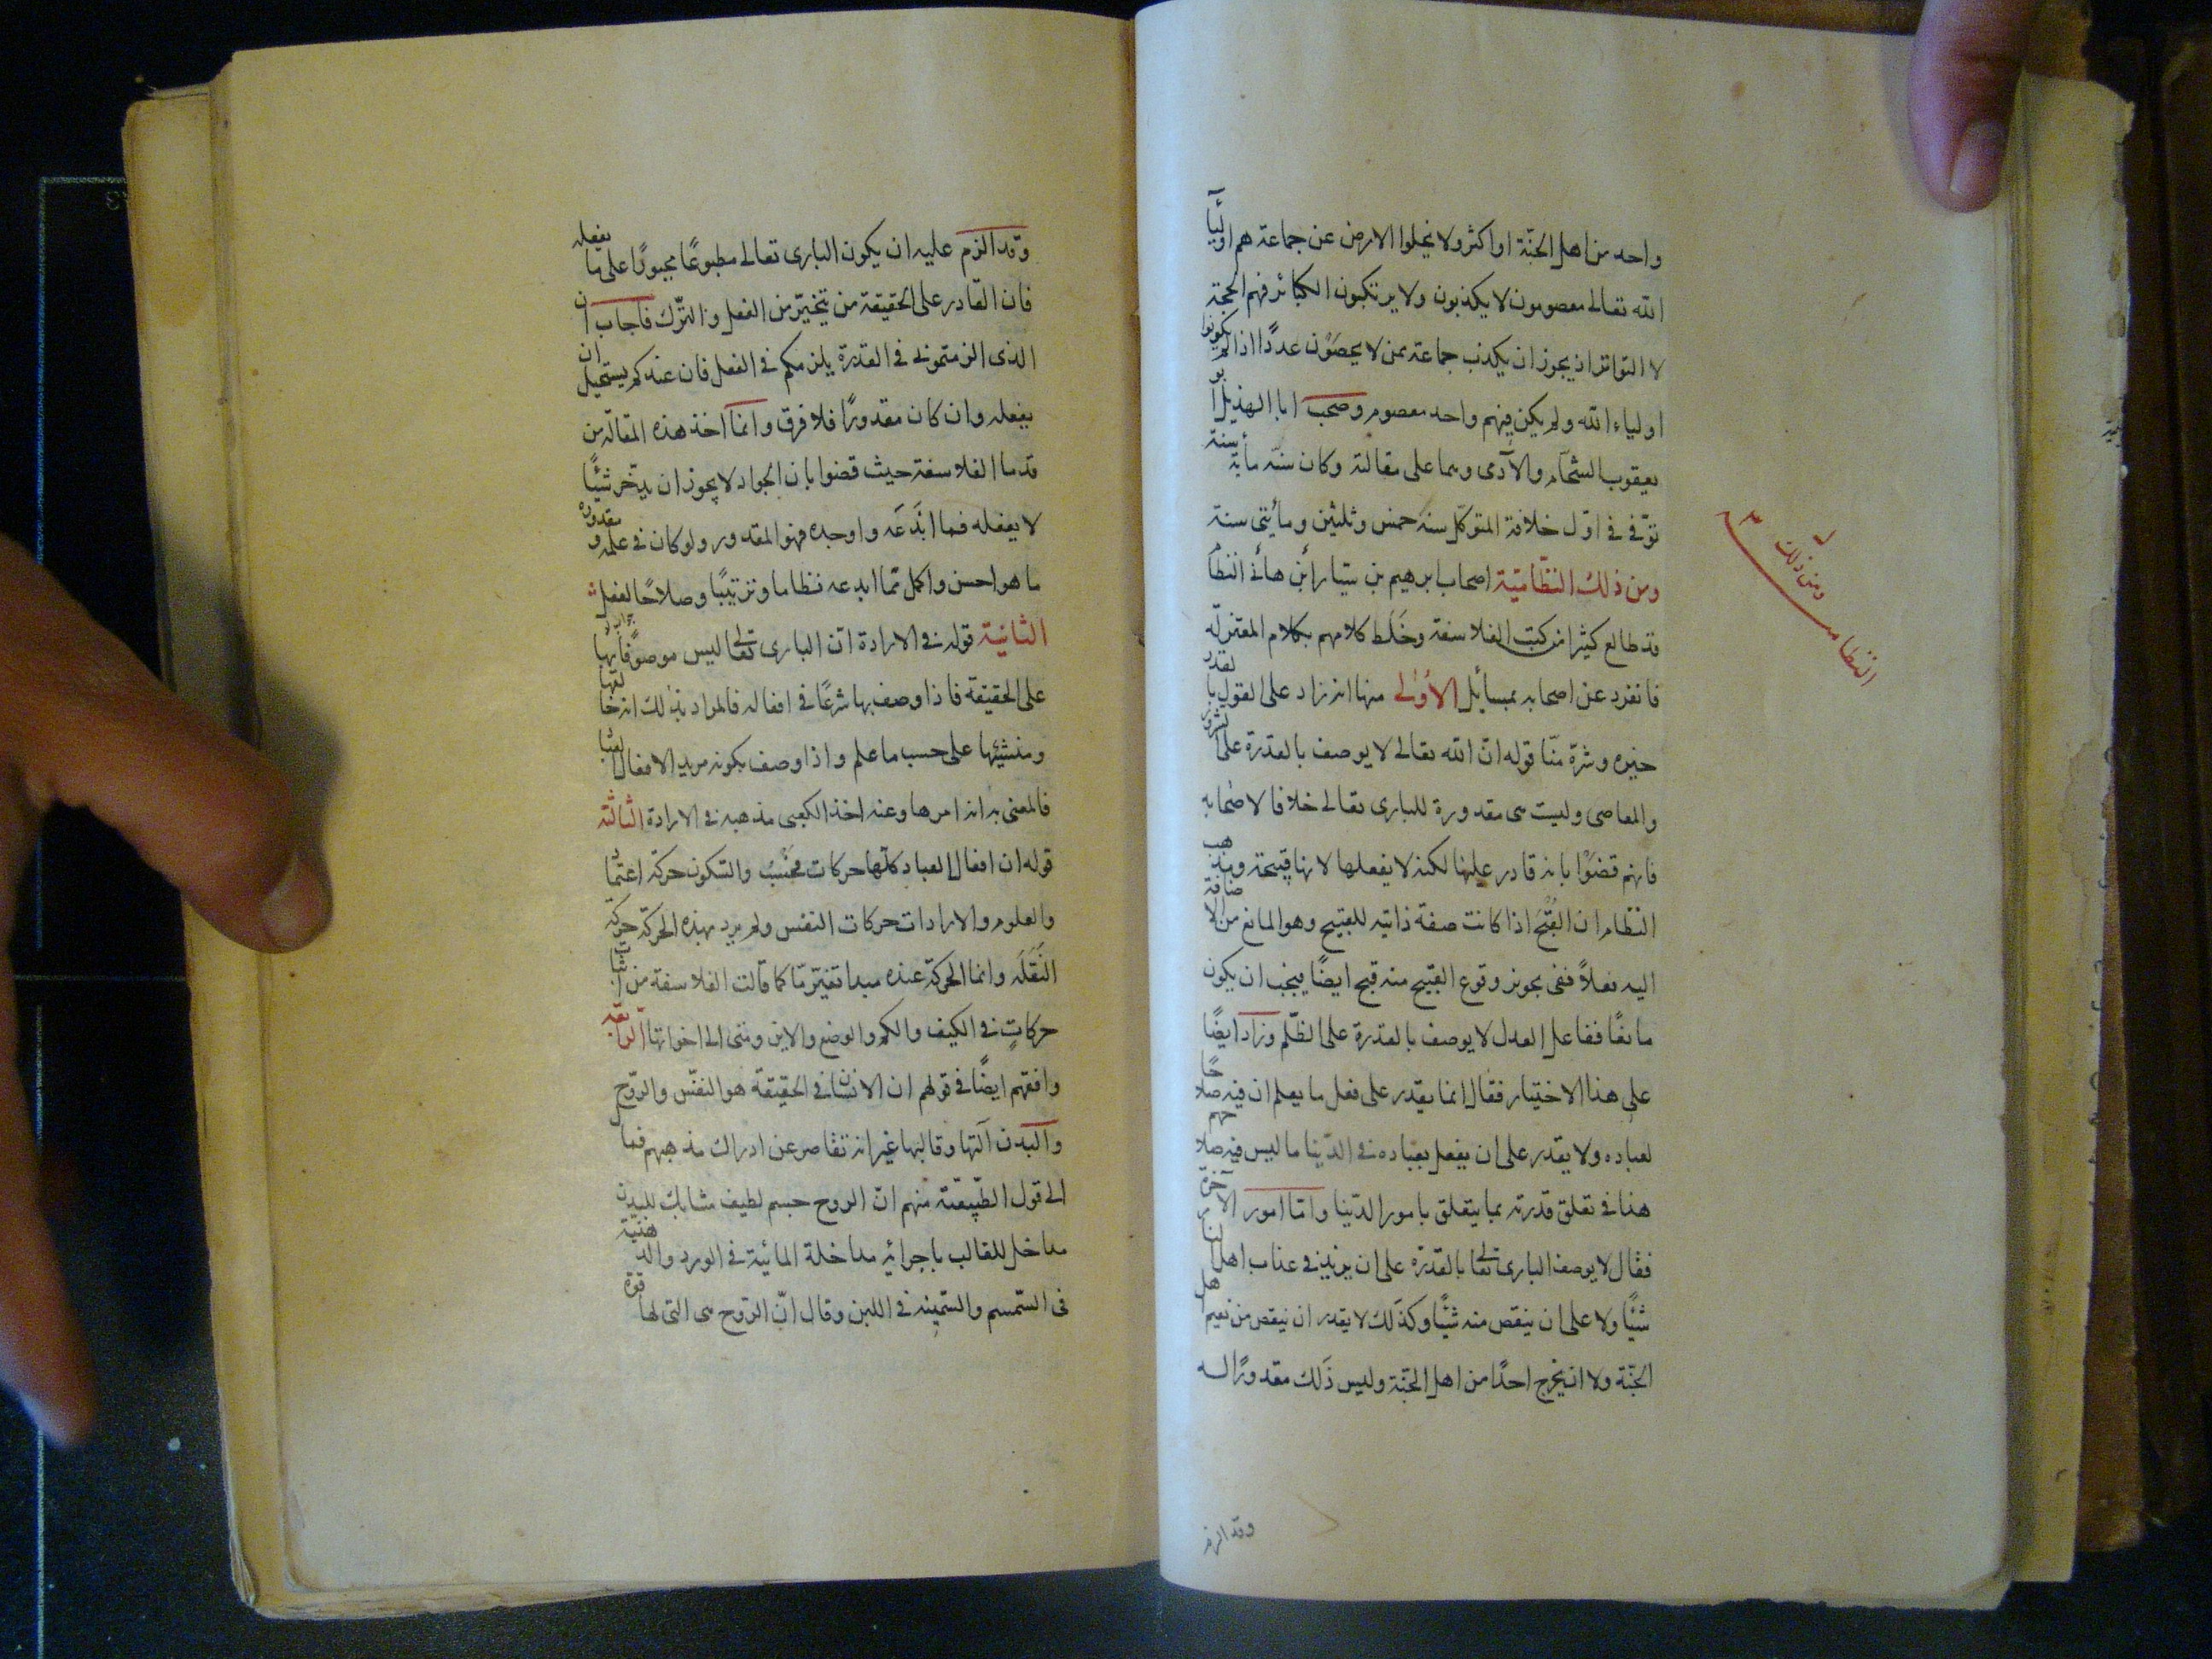 واحد من اهل الجنّة او اكثر ولا يخلوا الارض عن جماعة هم اوليآ
الله تعالى معصومون لا يكذبون ولا يرتكبون الكبائر فهم الحجة
لا التواتر اذ يجوز ان يكذب جماعة ممن لا يحصَوْن عددًا اذا لم يكونوا
اولياء الله ولم يكن فيهم واحد معصوم وصحب ابا الهذيل ابو
يعقوب الشحّام والآدمى وهما على مقالته وكان سنّه مأية سنة
توفّى فى اوّل خلافة المتوكّل سنة خمس وثلثين ومأيتى سنة
ومن ذلك النظّاميّة اصحاب ابرهيم بن سيّار بن هانى النظام
قد طالع كثيرا من كتب الفلاسفة وخَلَط كلامهم بكلام المعتزلة
فانفرد عن اصحابه بمسائل الاُولى منها انه زاد على القول بالقدر
خيره وشرّه منّا قوله انّ الله تعالى لا يوصف بالقدرة على الشرور
والمعاصى وليست هى مقدورة للبارى تعالى خلافا لاصحابه
فانهم قضَوْا بانه قادر عليها لكنه لا يفعلها لانها قبيحة ومذهب
النظّام ان القُبْحَ اذا كانت صفة ذاتية للقبيح وهو المانع من الاضافة
اليه فعلاً ففى تجويز وقوع القبيح منه قبح ايضًا فيجب ان يكون
مانعًا ففاعل العدل لا يوصف بالقدرة على الظّلم وزاد ايضًا
على هذا الاختيار فقال انما يقدر على فعل ما يعلم ان فيه صلاحًا
لعباده ولا يقدر على ان يفعل بعباده فى الدّنيا ما ليس فيه صلاحهم
هذا فى تعلق قدرته بما يتعلق بامور الدّنيا وامّا امور الآخرة
فقال لا يوصف البارى تعالى بالقدرة على ان يزيد فى عذاب اهل النار
شئًا ولا على ان ينقص منه شئًا وكذلك لا يقدر ان ينقص من نعيم اهل
الجنّة ولا ان يخرج احدًا من اهل الجنّة وليس ذلك مقدورًا له
وقد الزم
ومن ذلك
النظامـ
وقد الزم عليه ان يكون البارى تعالى مطبوعًا مجبورًا على ما يفعله
فان القادر على الحقيقة من يتخيّر من الفعل والترّك فاجاب ان
الذى الزمتمونى فى القدرة يلزمكم فى الفعل فان عندكم يستحيل ان
يفعله وان كان مقدورًا فلا فرق وانما اخذ هذه المقالة من
قدما الفلاسفة حيث قضوا بان الجواد لا يجوز ان يدّخر شئًا
لا يفعله فما ابْدَعَه واوجده فهو المقدور ولو كان فى علمه ومقدوره
ما هو احسن واكمل ممّا ابدعه نظاما وترتيبًا وصلاحًا لفعل
الثانية قوله فى الارادة انّ البارى تعالى ليس موصوفًا بها
على الحقيقة فاذا وصف بها شرعًا فى افعاله فالمراد بذلك انه خالقها
ومنشيئها على حسب ما علم واذا وصف بكونه مريد الافعال العباد
فالمعنى به انه امر بها وعنه اخذ الكعبى مذهبه فى الارادة الثالثة
قوله ان افعال العباد كلّها حركات فحَسْبُ والسّكون حركة اعتماد
والعلوم والارادات حركات النفس ولم يرد بهذه الحركة حركة
النُقلَه وانما الحركة عنده مبدا تغيّر مّا كما قالت الفلاسفة من اثبات
حركاتٍ فى الكيف والكم والوضع والاين ومتى الى اخواتها الرابعة
وافقهم ايضًا فى قولهم ان الانسان فى الحقيقة هو النفس والرّوح
والبدن آلتها وقالبها غير انه تقاصر عن ادراك مذهبهم فمال
الى قول الطّبيعيّة منهم انّ الروح جسم لطيف مشابك للبدن
مداخل للقالب باجزائه مداخلة المائية فى الورد والدهنيّة
فى السّمسم والسّمنيّة فى اللبن وقال انّ الرّوح هى التى لها قوة